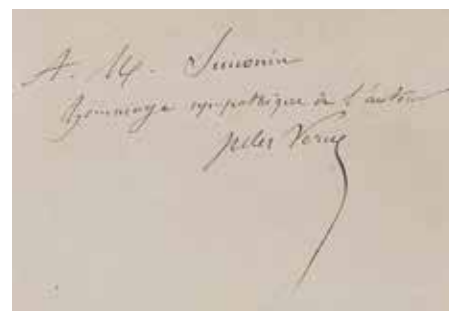 A. M. Simonin
Hommage sympathique de l'auteur
Jules Verne